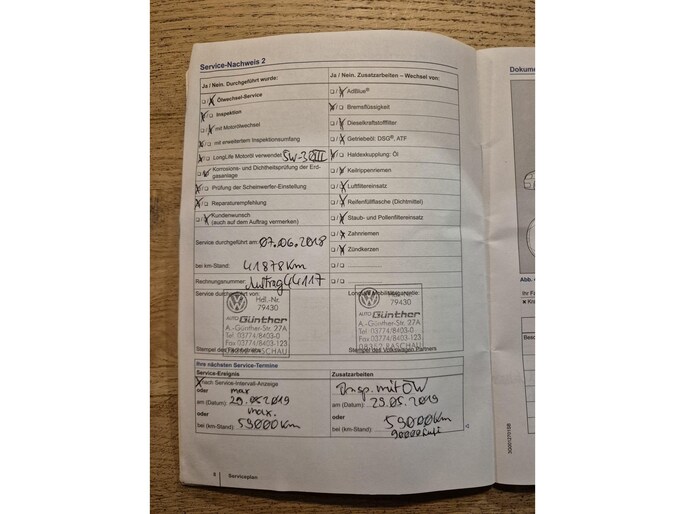 Service-Nachweis 2
Dokume
Ja / Nein. Durchgeführt wurde:
Ölwechsel-Service
Inspektion
mit Motorölwechsel
mit erweitertem Inspektionsumfang
LongLife Motoröl verwendet 5W-30 III
Korrosions- und Dichtheitsprüfung der Erd-
gasanlage
Prüfung der Scheinwerfer-Einstellung
Reparaturempfehlung
Kundenwunsch
(auch auf dem Auftrag vermerken)
Service durchgeführt am: 07.06.2018
bei km-Stand: 41878 Km
Rechnungsnummer: Auftrag 44117
Service durchgeführt von:
Hdl.-Nr.
79430
AUTO Günther
A.-Günther-Str. 27A
Tel 03774/8403-0
Fax 03774/8403-123
RASCHAU
Stempel des Fachbetriebs
Ja / Nein. Zusatzarbeiten – Wechsel von:
AdBlue®
Bremsflüssigkeit
Dieselkraftstofffilter
Getriebeöl: DSG®, ATF
Haldexkupplung: Öl
Keilrippenriemen
Luftfiltereinsatz
Reifenfüllflasche (Dichtmittel)
Staub- und Pollenfiltereinsatz
Zahnriemen
Zündkerzen
LongLife Mobilitätsgarantie
Hdl.-Nr.
79430
AUTO Günther
A.-Günther-Str. 27A
Tel. 03774/8403-0
Fax 03774/8403-123
08352 RASCHAU
Stempel des Volkswagen Partners
Ihre nächsten Service-Termine
Service-Ereignis
nach Service-Intervall-Anzeige
oder max
am (Datum): 29.05.2019
oder max.
bei (km-Stand): 59000 Km
Zusatzarbeiten
Insp. mit ÖW
am (Datum): 29.05.2019
oder
bei (km-Stand): 59000 Km
6 Serviceplan
Abb.
Ihr Fa
Besch